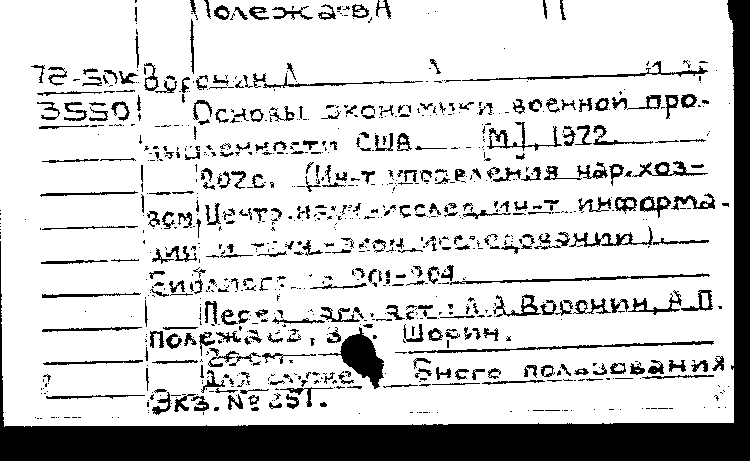 Полежаев, А
72-50к Воронин Л А и др
3550 Основы экономики военной про-
мышленности США. [М.], 1972.
207с. (Ин-т управления нар.хоз-
вом, Центр.научн.-исслед.ин-т информа-
ции и техн.-экон.исследований).
Библиогр. с 201-204.
Перед загл. авт.: Л.А.Воронин, А.П.
Полежаев, В.Г. Шорин.
20 cm.
Для служебного пользования.
Экз.№ 251.